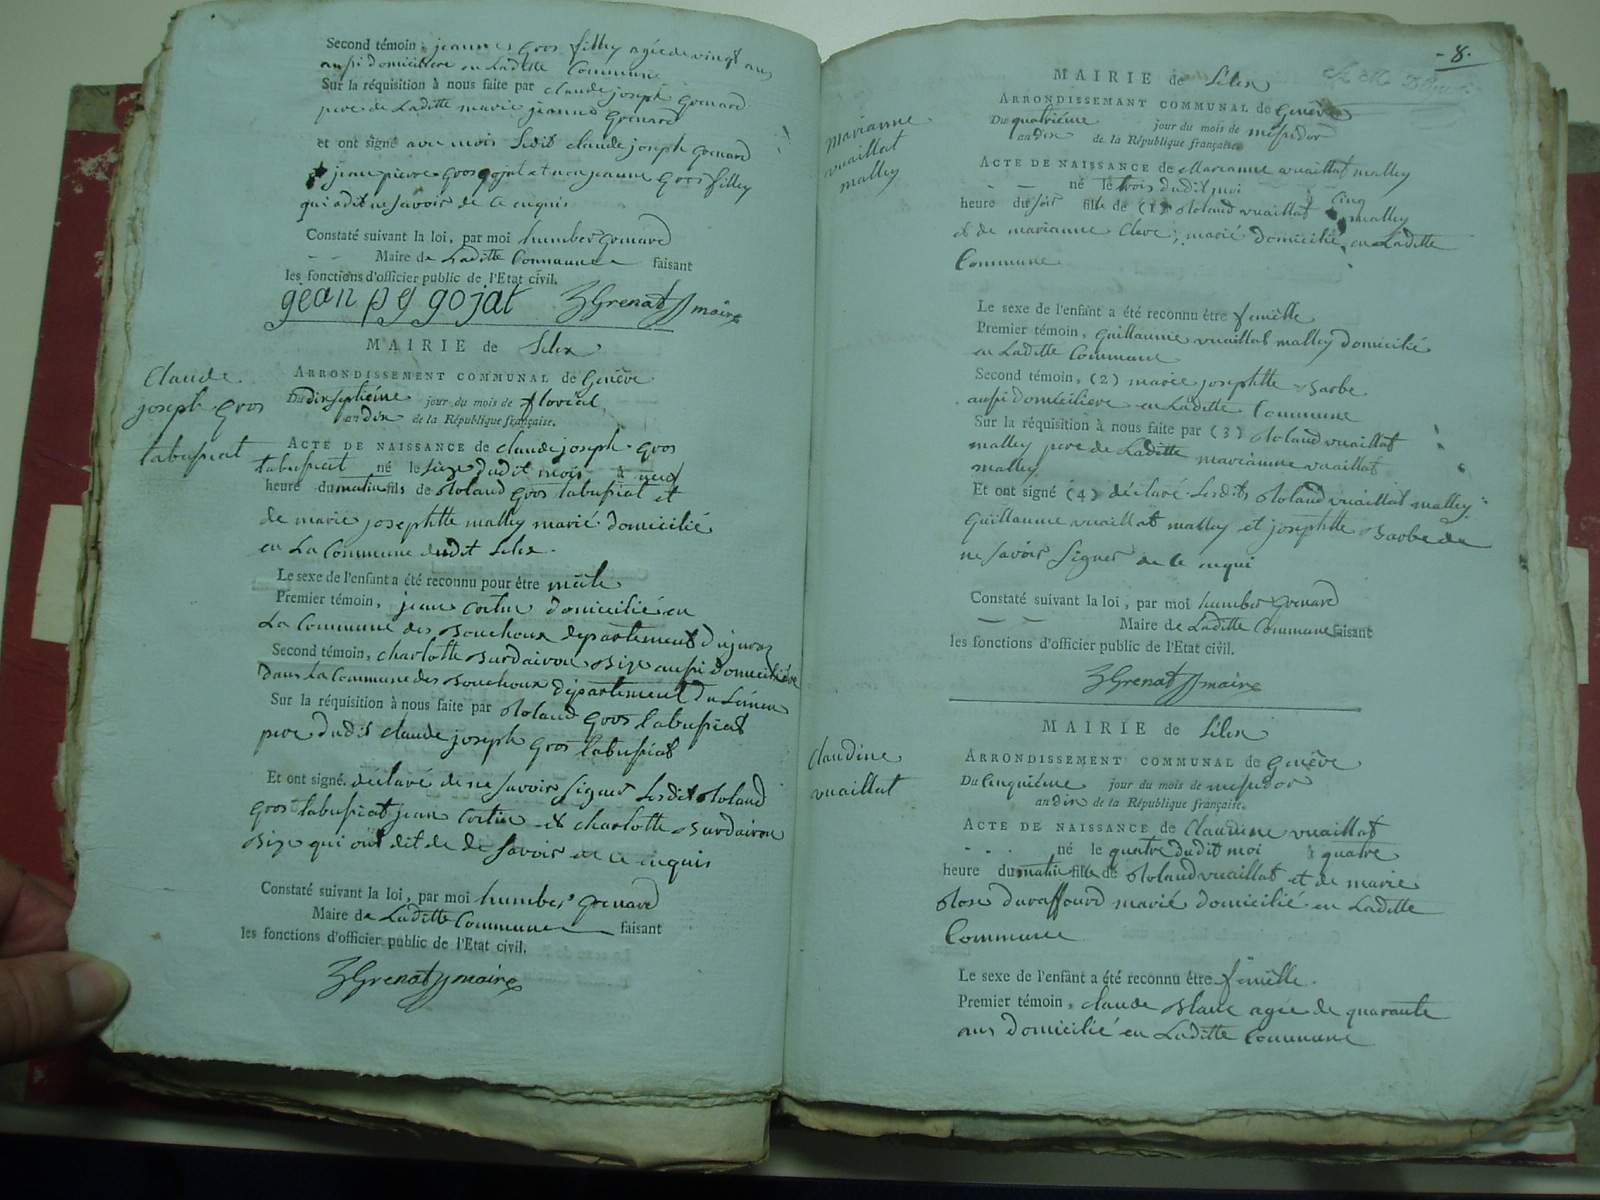 Second témoin, jeanne gros filley agée de vingt ans
aussi domiciliere en Laditte Commune
Sur la réquisition à nous faite par claude joseph grenard
pere de Laditte marie jeanne grenard
et ont signé avec mois Ledit claude joseph grenard
jean pierre gros gojat et non jeanne gros filley
qui a dit ne savoir de ce enquis
Constaté suivant la loi, par moi humber grenard
Maire de Laditte Commune faisant
les fonctions d'officier public de l'Etat civil.
gean p g gojat Grenat maire
MAIRIE de Lelex
ARRONDISSEMENT COMMUNAL de Genève
Du dix septieme jour du mois de floreal
an dix de la République française.
Claude
joseph gros
tabussiat
ACTE DE NAISSANCE de claude joseph gros
tabussiat né le seize dudit mois à neuf
heure du matin fils de Roland gros tabussiat et
de marie josephtte malley marié domicilié
en La Commune dudit Lelex.
Le sexe de l'enfant a été reconnu pour être mâle
Premier témoin, jean domicilié en
La Commune des Bouchoux departement du jura
Second témoin, charlotte aussi domiciliére
dans La Commune des Bouchoux département du Léman
Sur la réquisition à nous faite par Roland gros tabussiat
pere dudit claude joseph gros tabussiat
Et ont signé. déclaré de ne savoir signer Lesdit Roland
gros tabussiat jean et charlotte
qui ont dit de ne savoir de ce enquis
Constaté suivant la loi, par moi humber grenard
Maire de Laditte Commune faisant
les fonctions d'officier public de l'Etat civil.
Grenat maire
- 8 -
MAIRIE de Lelex
ARRONDISSEMANT COMMUNAL de Genève
Du quatriéme jour du mois de messidor
an dix de la République française.
marianne
vuaillat
malley
ACTE DE NAISSANCE de Marianne vuaillat malley
né le trois dudit moi à cinq
heure du soir fille de (1) Roland vuaillat malley
et de marianne marié domicilié en Laditte
Commune
Le sexe de l'enfant a été reconnu être femelle
Premier témoin, guillaume vuaillat malley domicilié
en Laditte Commune
Second témoin, (2) marie josephtte Barbe
aussi domiciliere en Laditte Commune
Sur la réquisition à nous faite par (3) Roland vuaillat
malley pere de Laditte marianne vuaillat
malley
Et ont signé (4) déclaré Lesdits Roland vuaillat malley
guillaume vuaillat malley et josephtte Barbe de
ne savoir signer de ce enqui
Constaté suivant la loi, par moi humber grenard
Maire de Laditte Commune faisant
les fonctions d'officier public de l'Etat civil.
Grenat maire
MAIRIE de Lelex
ARRONDISSEMENT COMMUNAL de Genêve
Du cinquiéme jour du mois de messidor
an dix de la République française.
claudine
vuaillat
ACTE DE NAISSANCE de Claudine vuaillat
né le quatre dudit moi à quatre
heure du matin fille de Roland vuaillat et de marie
Rose duraffourd marié domicilié en Laditte
Commune
Le sexe de l'enfant a été reconnu être femelle.
Premier témoin, claude Blanc agée de quarante
ans domicilié en Laditte Commune